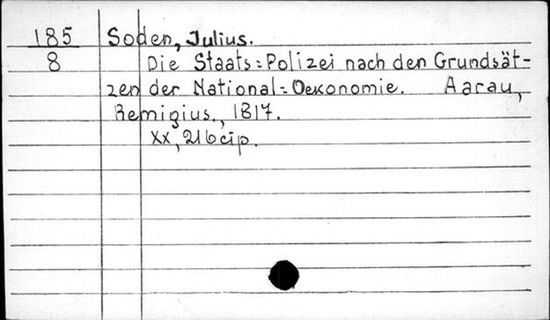 185 Soden, Julius.
8 Die Staats=Polizei nach den Grundsät-
zen der National=Oekonomie. Aarau,
Remigius., 1817.
XX, 216